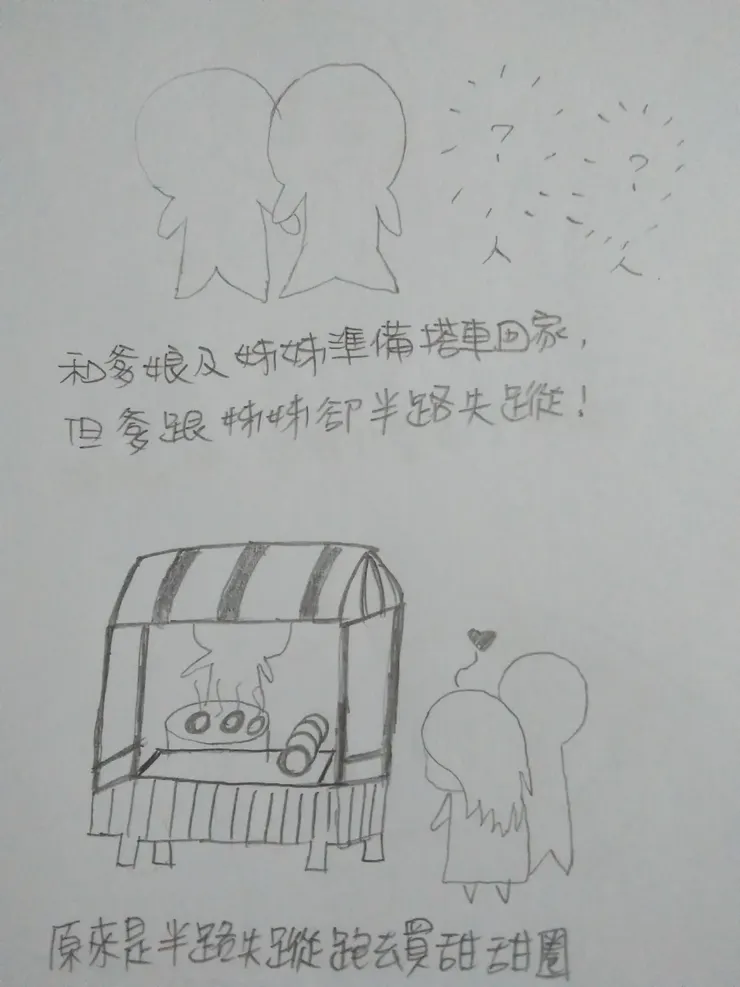 ? ?
人 人
和爹娘及姊姊準備塔車回家,
但爹跟姊姊卻半路失蹤!
原來是半路失蹤跑去買甜甜圈